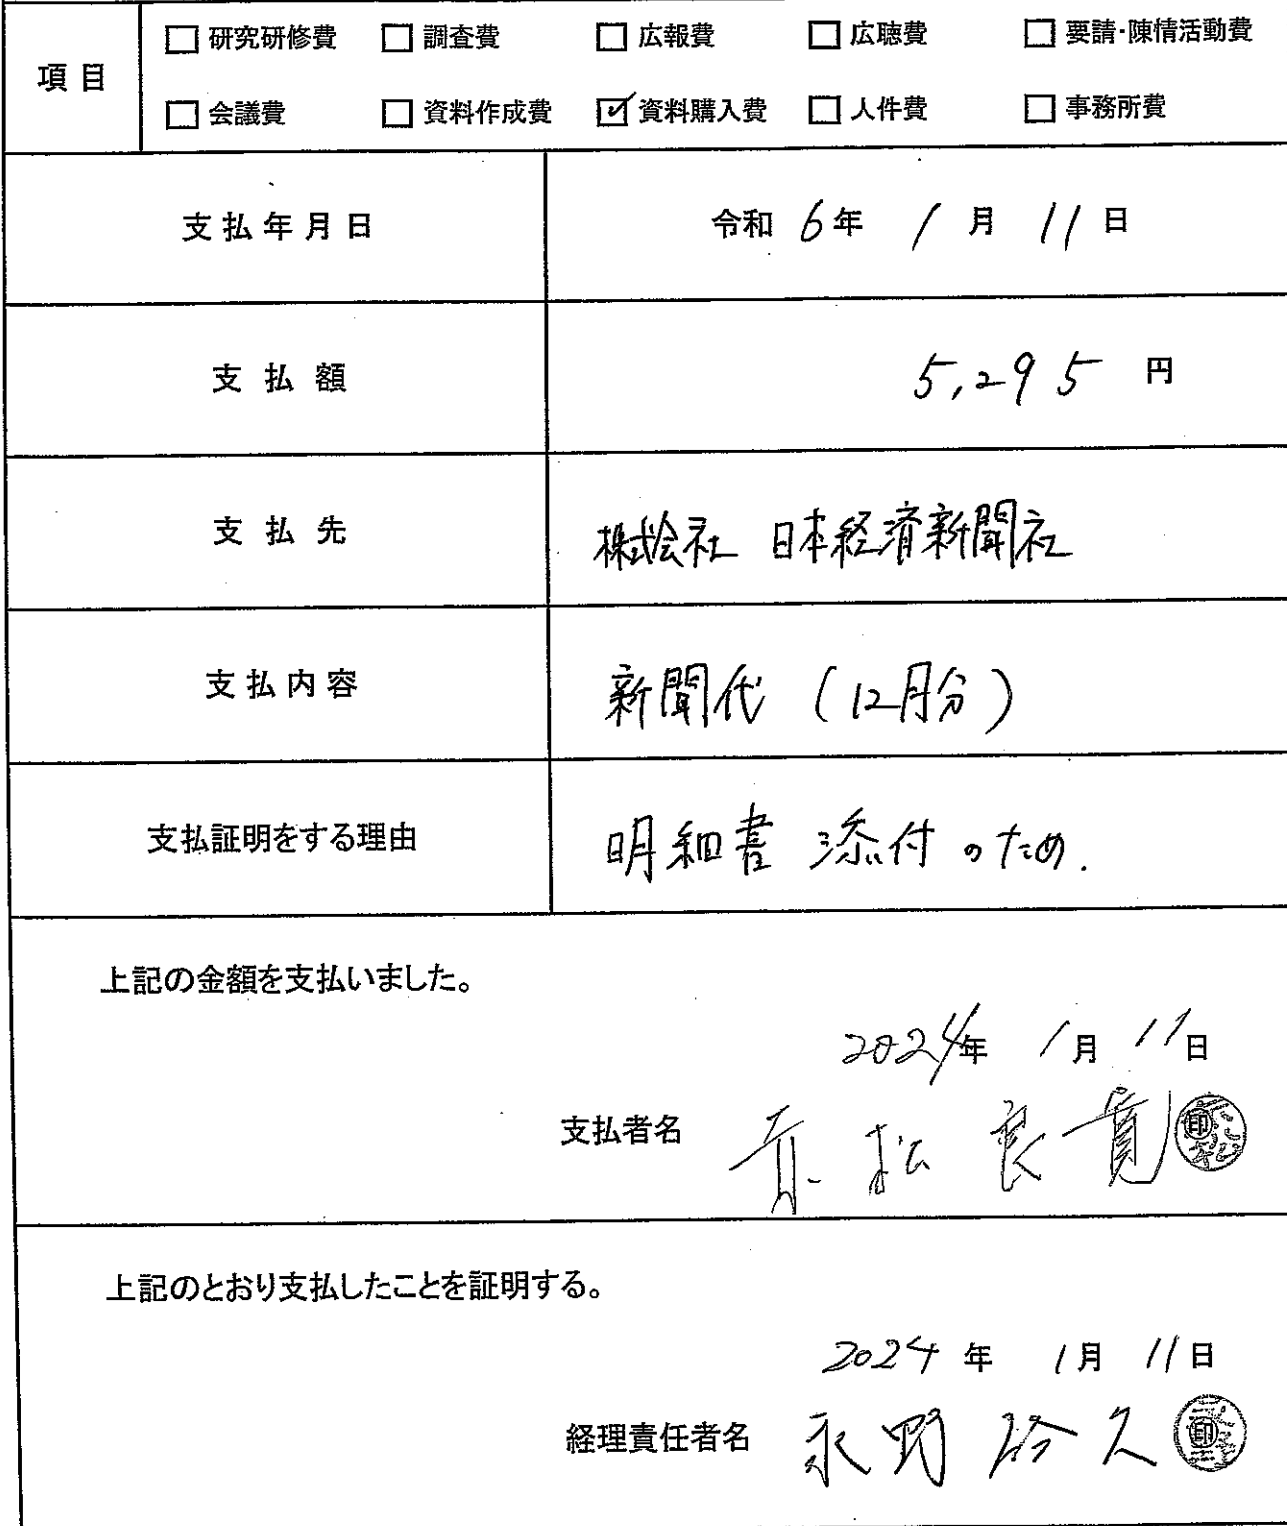 項目
□ 研究研修費 □ 調査費 □ 広報費 □ 広聴費 □ 要請・陳情活動費
□ 会議費 □ 資料作成費 ☑ 資料購入費 □ 人件費 □ 事務所費
支払年月日 令和 6年 1月 11日
支払額 5,295 円
支払先 株式会社 日本経済新聞社
支払内容 新聞代 (12月分)
支払証明をする理由 明細書 添付のため.
上記の金額を支払いました。
2024年 1月 11日
支払者名 赤松良寛 印
上記のとおり支払したことを証明する。
2024年 1月 11日
経理責任者名 永野裕久 印